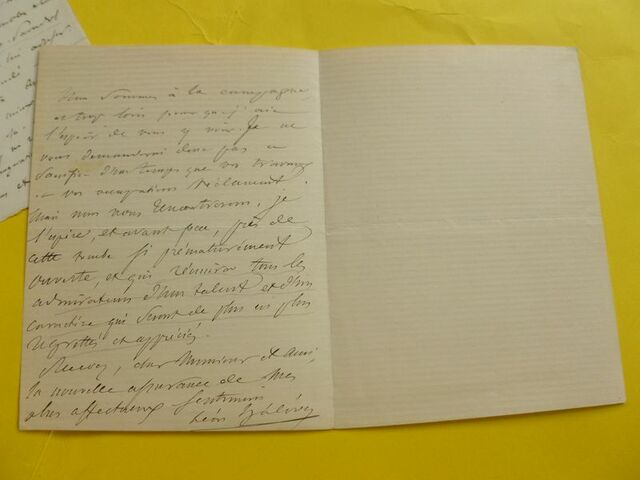 Nous sommes à la campagne,
et trop loin pour que j'aie
l'espoir de vous y voir. Je ne
vous demanderai donc pas le
sacrifice d'un temps que vos travaux
et vos occupations réclament.
Mais nous nous rencontrerons, je
l'espère, et avant peu, près de
cette tombe si prématurément
ouverte, et qui réunira tous les
admirateurs d'un talent et d'un
caractère qui seront de plus en plus
regrettés et appréciés.
Recevez, cher Monsieur et ami,
la nouvelle assurance de mes
plus affectueux sentiments
Léon Halévy